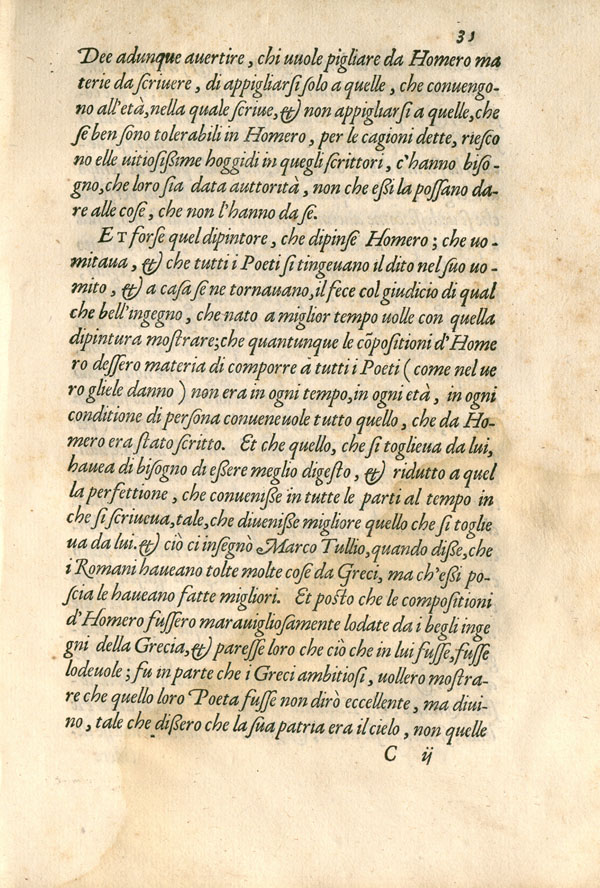 31
Dee adunque auertire, chi uuole pigliare da Homero ma
terie da ſcriuere, di appigliarſi ſolo a quelle, che conuengo-
no all'età, nella quale ſcriue, & non appigliarſi a quelle, che
ſe ben ſono tolerabili in Homero, per le cagioni dette, rieſco
no elle uitioſißime hoggidi in quegli ſcrittori, c'hanno biſo-
gno, che loro ſia data auttorità, non che eßi la poſſano da-
re alle coſe, che non l'hanno da ſe.
ET forſe quel dipintore, che dipinſe Homero; che uo-
mitaua, & che tutti i Poeti ſi tingeuano il dito nel ſuo uo-
mito, & a caſa ſe ne tornauano, il fece col giudicio di qual
che bell'ingegno, che nato a miglior tempo uolle con quella
dipintura moſtrare; che quantunque le cõpoſitioni d'Home
ro deſſero materia di comporre a tutti i Poeti (come nel ue
ro gliele danno) non era in ogni tempo, in ogni età, in ogni
conditione di perſona conueneuole tutto quello, che da Ho-
mero era ſtato ſcritto. Et che quello, che ſi toglieua da lui,
hauea di biſogno di eßere meglio digeſto, & ridutto a quel
la perfettione, che conueniße in tutte le parti al tempo in
che ſi ſcriueua, tale, che diueniße migliore quello che ſi toglie
ua da lui. & ciò ci inſegnò Marco Tullio, quando diße, che
i Romani haueano tolte molte coſe da Greci, ma ch'eßi po-
ſcia le haueano fatte migliori. Et poſto che le compoſitioni
d'Homero fuſſero marauiglioſamente lodate da i begli inge
gni della Grecia, & pareſſe loro che ciò che in lui fuſſe, fuſſe
lodeuole; fu in parte che i Greci ambitioſi, uollero moſtra-
re che quello loro Poeta fuſſe non dirò eccellente, ma diui-
no, tale che dißero che la ſua patria era il cielo, non quelle
C ij